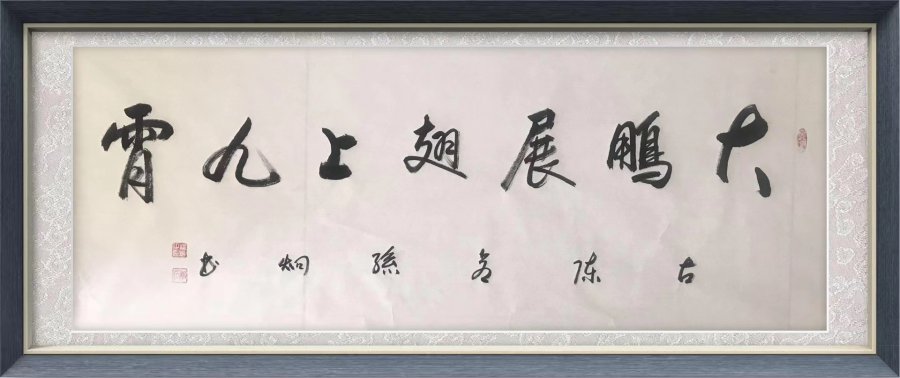 大鵬展翅上九霄
古陈仓孫炯书